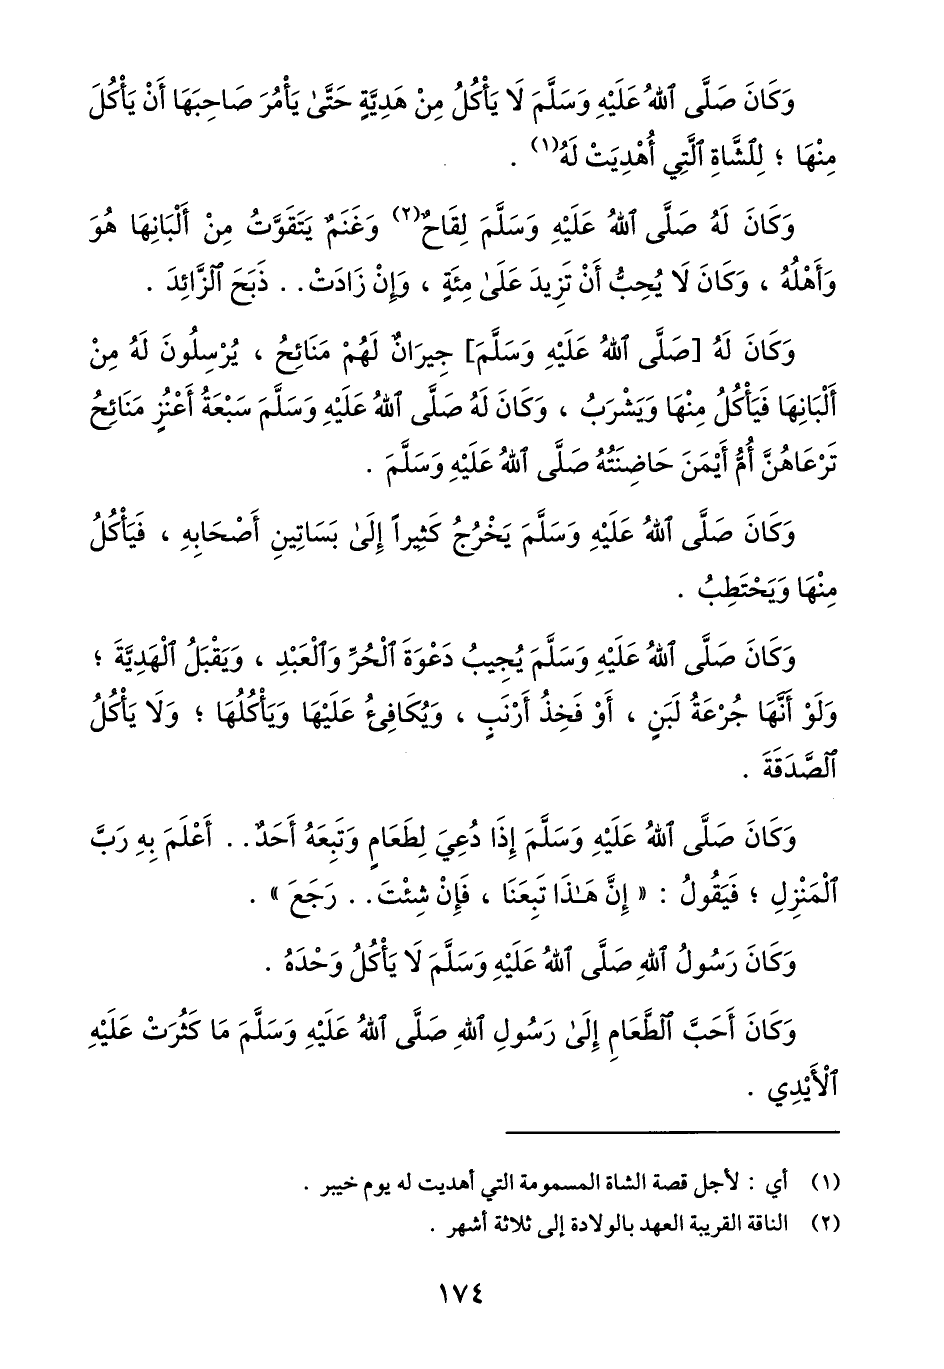 وَكَانَ صَلَّى ٱللهُ عَلَيْهِ وَسَلَّمَ لَا يَأْكُلُ مِنْ هَدِيَّةٍ حَتَّىٰ يَأْمُرَ صَاحِبَهَا أَنْ يَأْكُلَ
مِنْهَا ؛ لِلشَّاةِ ٱلَّتِي أُهْدِيَتْ لَهُ(١) .
وَكَانَ لَهُ صَلَّى ٱللهُ عَلَيْهِ وَسَلَّمَ لِقَاحٌ(٢) وَغَنَمٌ يَتَقَوَّتُ مِنْ أَلْبَانِهَا هُوَ
وَأَهْلُهُ ، وَكَانَ لَا يُحِبُّ أَنْ تَزِيدَ عَلَىٰ مِئَةٍ ، وَإِنْ زَادَتْ.. ذَبَحَ ٱلزَّائِدَ .
وَكَانَ لَهُ [صَلَّى ٱللهُ عَلَيْهِ وَسَلَّمَ] جِيرَانٌ لَهُمْ مَنَائِحُ ، يُرْسِلُونَ لَهُ مِنْ
أَلْبَانِهَا فَيَأْكُلُ مِنْهَا وَيَشْرَبُ ، وَكَانَ لَهُ صَلَّى ٱللهُ عَلَيْهِ وَسَلَّمَ سَبْعَةُ أَعْنُزٍ مَنَائِحُ
تَرْعَاهُنَّ أُمُّ أَيْمَنَ حَاضِنَتُهُ صَلَّى ٱللهُ عَلَيْهِ وَسَلَّمَ .
وَكَانَ صَلَّى ٱللهُ عَلَيْهِ وَسَلَّمَ يَخْرُجُ كَثِيراً إِلَىٰ بَسَاتِينِ أَصْحَابِهِ ، فَيَأْكُلُ
مِنْهَا وَيَحْتَطِبُ .
وَكَانَ صَلَّى ٱللهُ عَلَيْهِ وَسَلَّمَ يُجِيبُ دَعْوَةَ ٱلْحُرِّ وَٱلْعَبْدِ ، وَيَقْبَلُ ٱلْهَدِيَّةَ ؛
وَلَوْ أَنَّهَا جُرْعَةُ لَبَنٍ ، أَوْ فَخِذُ أَرْنَبٍ ، وَيُكَافِئُ عَلَيْهَا وَيَأْكُلُهَا ؛ وَلَا يَأْكُلُ
ٱلصَّدَقَةَ .
وَكَانَ صَلَّى ٱللهُ عَلَيْهِ وَسَلَّمَ إِذَا دُعِيَ لِطَعَامٍ وَتَبِعَهُ أَحَدٌ.. أَعْلَمَ بِهِ رَبَّ
ٱلْمَنْزِلِ ؛ فَيَقُولُ : « إِنَّ هَـٰذَا تَبِعَنَا ، فَإِنْ شِئْتَ.. رَجَعَ » .
وَكَانَ رَسُولُ ٱللهِ صَلَّى ٱللهُ عَلَيْهِ وَسَلَّمَ لَا يَأْكُلُ وَحْدَهُ .
وَكَانَ أَحَبَّ ٱلطَّعَامِ إِلَىٰ رَسُولِ ٱللهِ صَلَّى ٱللهُ عَلَيْهِ وَسَلَّمَ مَا كَثُرَتْ عَلَيْهِ
ٱلْأَيْدِي .
(١) أي : لأجل قصة الشاة المسمومة التي أهديت له يوم خيبر .
(٢) الناقة القريبة العهد بالولادة إلى ثلاثة أشهر .
١٧٤